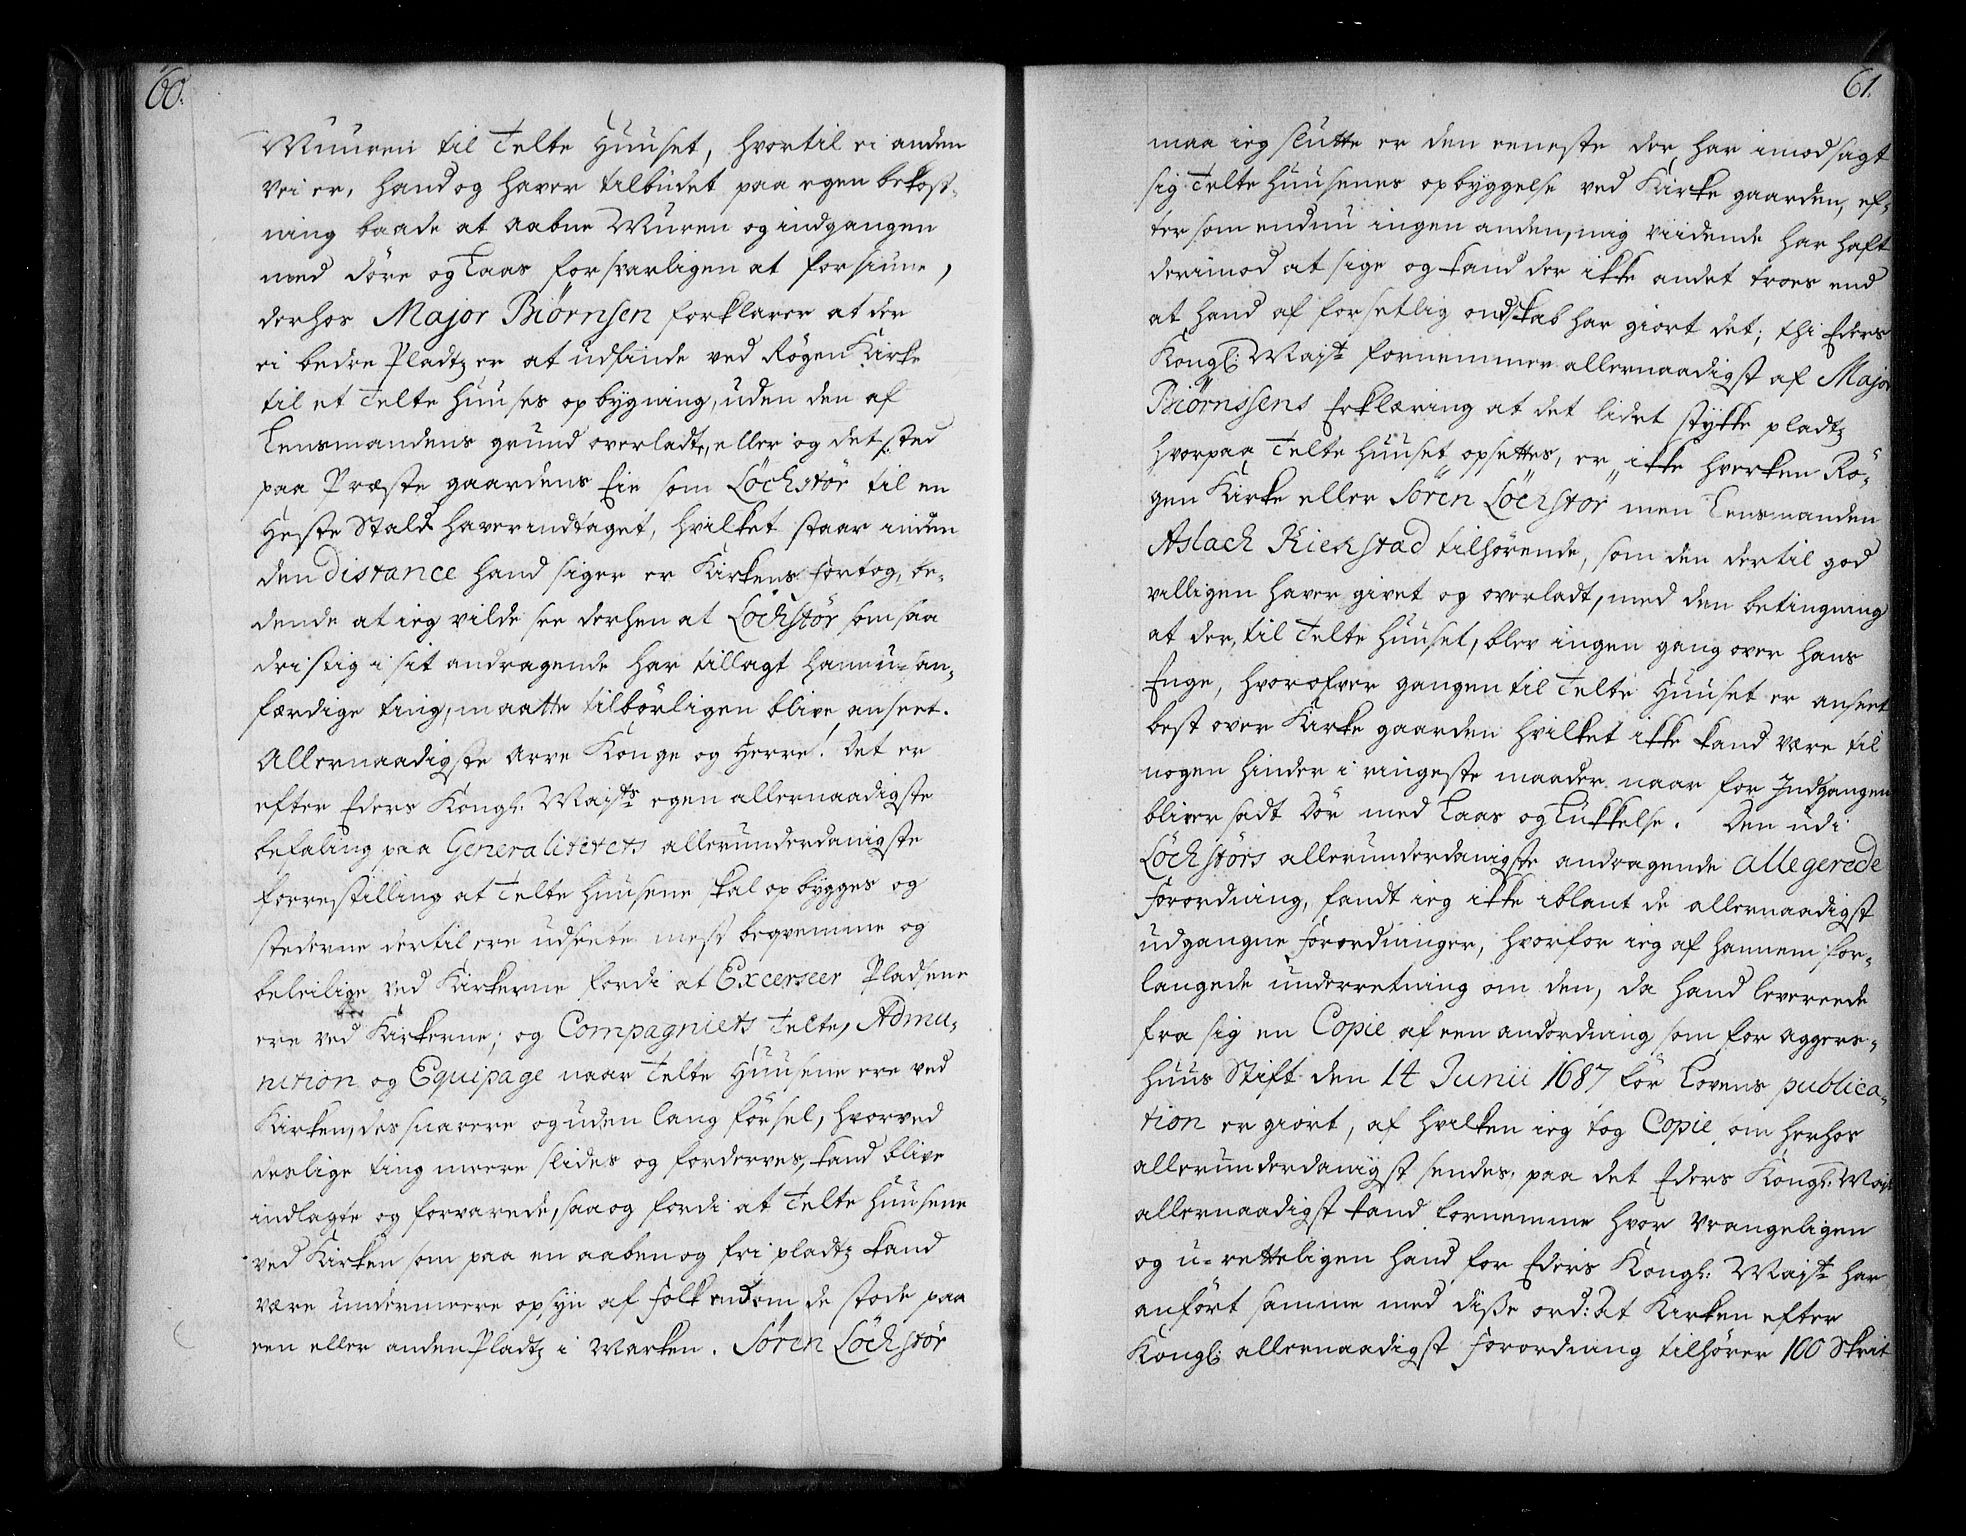 60.
Muuren til Telte Huuset, hvortil ei anden
vei er, hand og haver tilbudet paa egen bekost-
ning baade at aabne Muren og indgangen
med döre og Laas forsvarligen at forsiune,
derhos Major Biörnsen forklarer at der
ei bedre Pladtz er at udfinde ved Rögen Kirke
til et Telte Huuses opbygning, uden den af
Lensmandens grund overladte, eller og det sted
paa Præste gaardens Eie som Löchstör til en
Heste Stald haver indtaget, hvilket staar inden
den distance hand siger er Kirkens fortog, be-
dende at ieg vilde see derhen at Löchstör som saa
dristig i sit andragende har tillagt ham u-san-
færdige ting, maatte tilbörligen blive anseet.
Allernaadigste Arve Konge og Herre! Det er
efter Eders Kongl: Majts: egen allernaadigste
befaling paa Generalitetets allerunderdanigste
forrestilling at Telte Huusene skal opbygges og
stederne dertil ere udseete mest beqvemme og
beleilige ved Kirkerne fordi at Excerseer Pladsene
ere ved Kirkerne; og Compagniets Telte, Admu-
nition og Equipage naar Telte Huusene ere ved
Kirken, des snarere og uden lang försel, hvorved
deslige ting meere slides og forderves, kand blive
indlagte og forvarede, saa og fordi at Telte Huusene
ved Kirken som paa en aaben og fri pladtz kand
være under meere opsyn af Folk end om de stode paa
een eller anden Pladtz i Marken. Sören Löchstör
61.
maa ieg slutte er den eeneste der har imodsagt
sig Telte Huusenes opbyggelse ved Kirke gaarden, ef-
tersom endnu ingen anden, mig viidende har haft
derimod at sige og kand der ikke andet troes end
at hand af forsetlig ondskab har giort det; thi Eders
Kongl: Majt: fornemmer allernaadigst af Major
Biörnssens Erklæring at det lidet stykke pladtz
hvorpaa Telte Huuset opsettes, er ikke hverken Rö-
gen Kirke eller Sören Löchstör men Lensmanden
Aslach Kiekstad tilhörende, som den dertil god
villigen haver givet og overladt, med den betingning
at der, til Telte Huuset, blev ingen gang over hans
Enge, hvorofver gangen til Telte Huuset er anseet
best over Kirke gaarden hvilket ikke kand være til
nogen hinder i ringeste maader naar for Indgangen
bliver sadt Dör med Laas og Lukkelse. Den udi
Löchstörs allerunderdanigste andragende allegerede
Forordning, fandt ieg ikke iblant de allernaadigst
udgangne Forordninger, hvorfor ieg af hannem for-
langede underretning om den, da hand levereede
fra sig en Copie af een anordning som for Aggers-
huus Stift den 14 Junii 1687 för Lovens publica-
tion er giort, af hvilken ieg tog Copie, om herhos
allerunderdanigst sendes, paa det Eders Kongl: Majt
allernaadigst kand fornemme hvor vrangeligen
og u-retteligen hand for Eders Kongl: Majt: har
anfört samme med disse ord: At Kirken efter
Kongl: allernaadigst Forordning tilhörer 100 Skrit